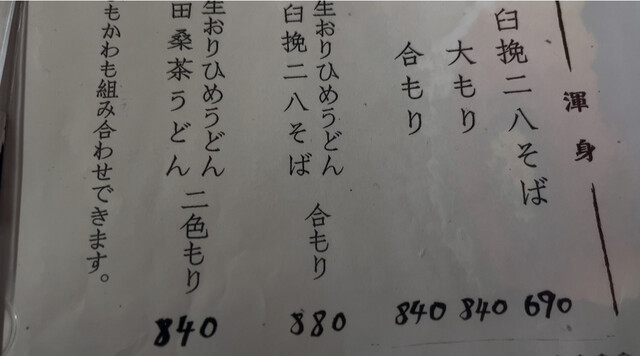 渾身
臼挽二八そば 690
大もり 840
合もり 840
生おりひめうどん
臼挽二八そば 合もり 880
生おりひめうどん
田桑茶うどん 二色もり 840
もかわも組み合わせできます。